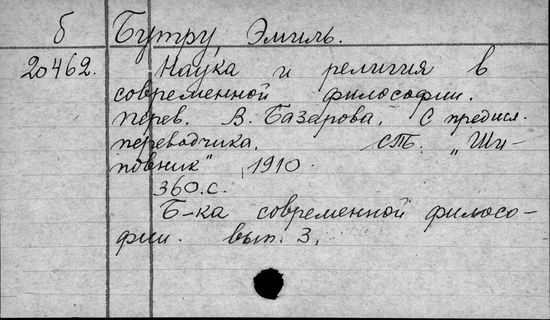 б Бутру, Эмиль.
20462. Наука и религия в
современной философии.
Перев. В. Базарова. С предисл.
переводчика. СПб. „Ши-
повник" 1910.
360.с.
Б-ка современной филосо-
фии. вып. 3.